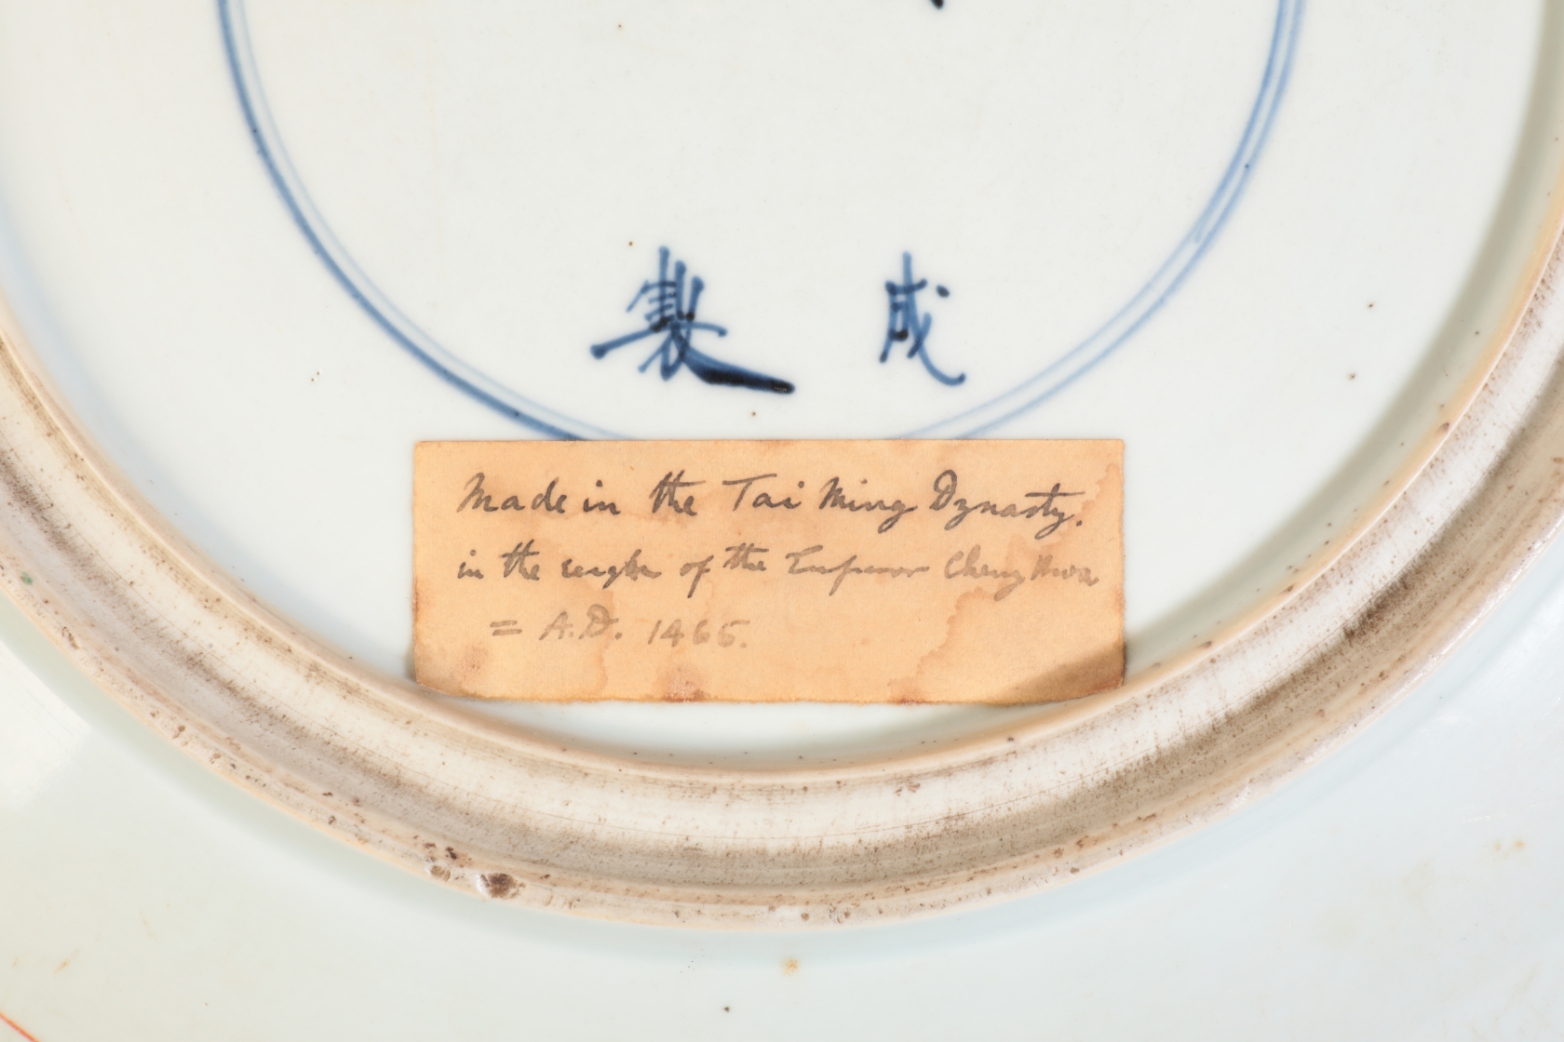 成
製
Made in the Tai Ming Dynasty.
in the reighn of the Emperor Cheng Hwa
= A.D. 1465.